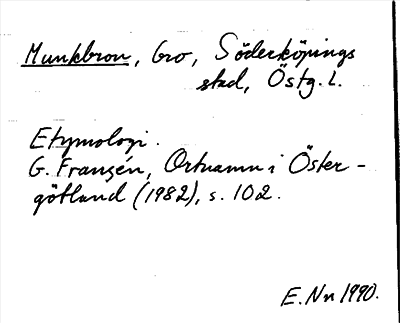 Munkbron, bro, Söderköpings
stad, Östg. l.
Etymologi.
G. Franzén, Ortnamn i Öster-
götland (1982), s. 102.
E. Nn 1990.